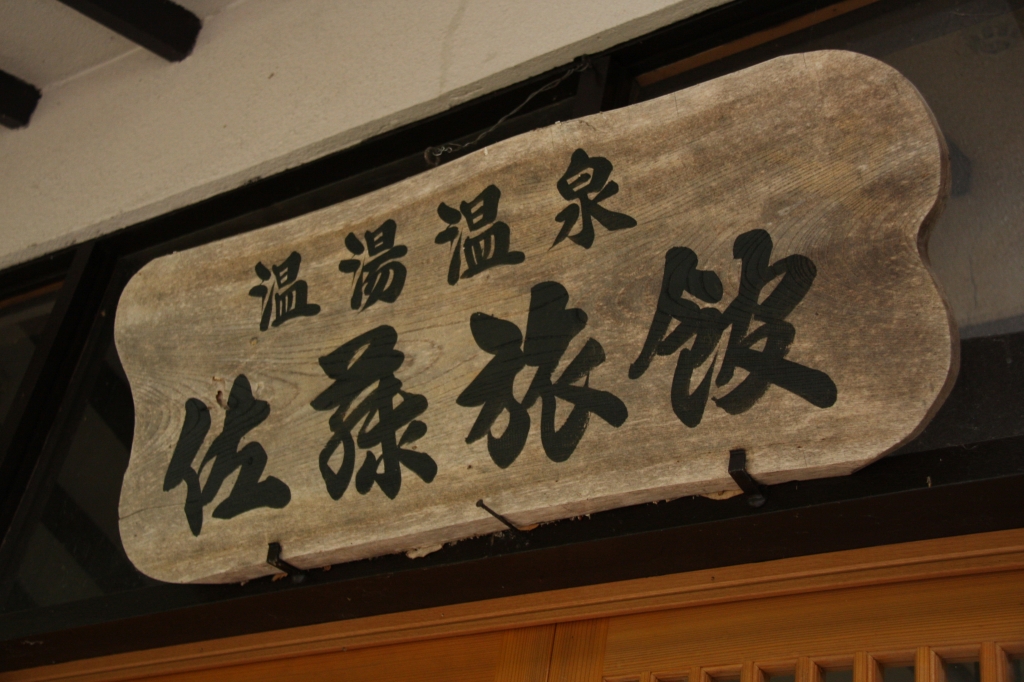 温湯温泉
佐藤旅館